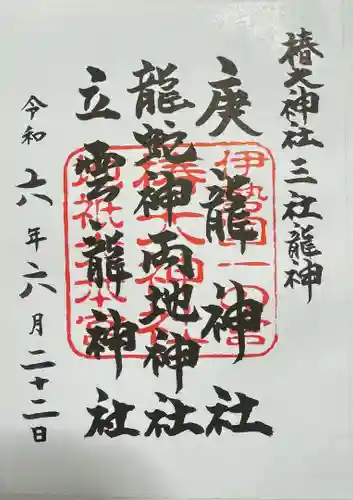 椿大神社 三社龍神
庚龍神社
龍蛇神両地神社
立雲龍神社
令和六年六月二十二日
伊勢国一の宮
椿大神社
地祇大本宮